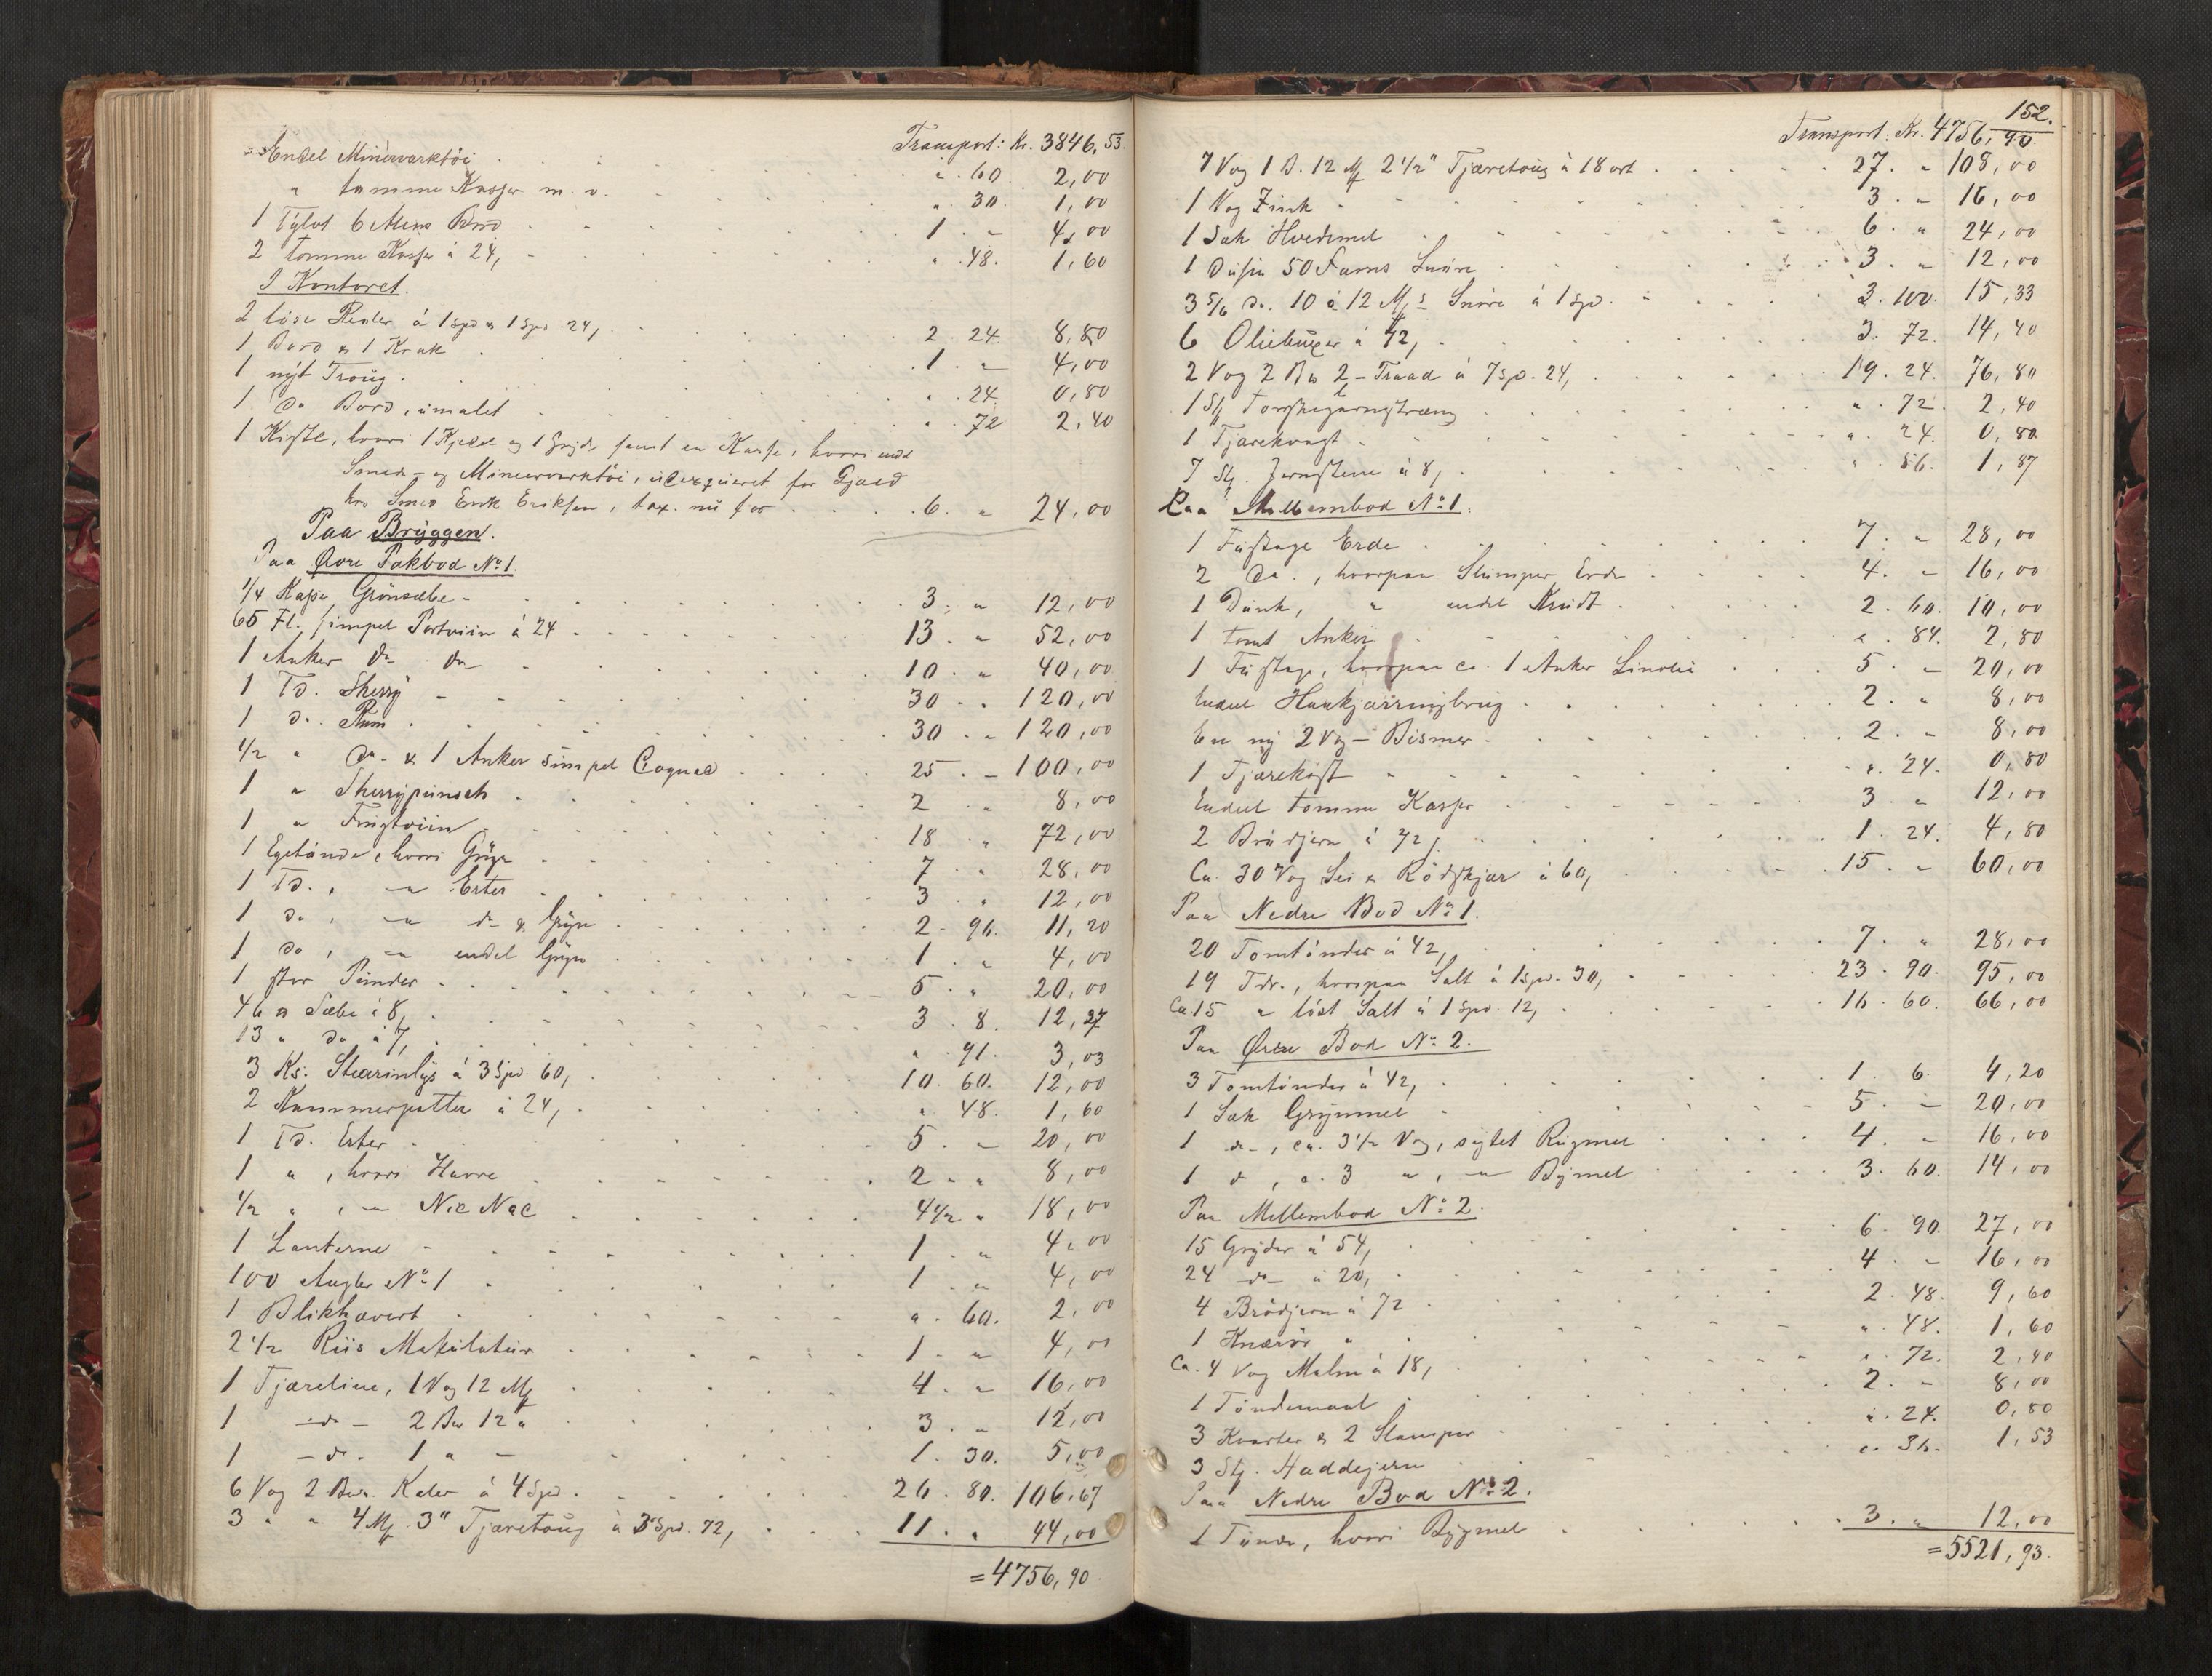 Transport: Kr. 3846,53
Endel Minerværktöi . . . " . 60 2,00
" tomme Kasser m. v. . . " . 30 1,00
1 Tylvt 6 Alens Bord . . . 1 . " 4,00
2 tomme Kasser á 24, . . . " . 48. 1,60
I Kontoret.
2 löse Reoler á 1 spd & 1 spd. 24, . . . 2 24 8,80
1 Bord & 1 Krak . . . 1 . " 4,00
1 nyt Troug . . . " . 24. 0,80
1 do Bord, umalet . . . " . 72 2,40
1 Kiste, hvori 1 Kjedel og 1 Gryde samt en Kasse, hvori endel
Smed- og Minerværktöi, udexqueret for Gjæld
hos Smed Erik Eriksen, tax. nu for . . . 6. " 24,00
Paa Bryggen.
Paa Övre Pakbod No 1.
1/4 Kasse Grönsæbe - . . . 3. " 12,00
65 Fl. simpel Portviin á 24 . . . 13. " 52,00
1 Anker do do . . . 10. " 40,00
1 Td. Sherry . . . 30. " 120,00
1 d. Rum . . . 30. " 120,00
1/2 " do & 1 Anker simpel Cognac . . . 25. " 100,00
1 " Sherrypunsch . . . 2 . " 8,00
1 " Frugtviin . . . 18 " 72,00
1 Egetönde, hvori Gryn . . . 7 . " 28,00
1 Td., " Erter . . . 3 . " 12,00
1 do, " do & Gryn . . . 2 - 96. 11,20
1 do, " endel Gryn . . . 1 . " 4,00
1 stor Punder . . . 5 . " 20,00
46 ℔ Sæbe á 8, . . . 3 . 8. 12,27
13 " do á 7, . . . " . 91. 3,03
3 Ks. Stearinlys á 3 Spd. 60, . . . 10. 60. 12,00
2 Kammerpotter á 24, . . . " 48. 1,60
1 Td. Erter . . . 5 . " 20,00
1 ", hvori Havre . . . 2 . " 8,00
1/2 ", " Nic Nac . . . 4 1/2 " 18,00
1 Lanterne . . . 1 . " 4,00
100 Angler No 1 . . . 1 . " 4,00
1 Blikhævert . . . " . 60. 2,00
2 1/2 Riis Makulatur . . . 1 . " 4,00
1 Tjæreline, 1 Vog 12 Mk . . . 4 . " 16,00
1 -do- 2 Bp 12 " . . . 3 . " 12,00
1 -do. 1 " - . . . 1. 30. 5,00
6 Vog 2 Bp. Kaler á 4 Spd. . . . 26. 80. 106,67
3 " " 4 Mk 3" Tjæretoug á 3 Spd. 72, . . . 11 . " 44,00
= 4756,90
152.
Transport: Kr. 4756,90
7 Vog 1 B. 12 Mk 2 1/2" Tjæretoug á 18 ort . . . 27. " 108,00
1 Vog Zink . . . 3. " 16,00
1 Sæk Hvedemel . . . 6. " 24,00
1 Dusin 50 Favns Snöre . . . 3. " 12,00
3 5/6 do. 10 á 12 Mks Snöre á 1 spd. . . . 3. 100. 15,33
6 Oliebuxer á 72, . . . 3. 72. 14,40
2 Vog 2 Bp 2-Traad á 7 sp. 24, . . . 19. 24. 76,80
1 Stk Torskegarnstræng . . . " . 72. 2,40
1 Tjærekvast . . . " . 24. 0,80
7 Stk. Jernstene á 8, . . . " . 56. 1,87
Paa Mellembod No 1.
1 Fustage Erde . . . 7. " 28,00
2 do., hvorpaa Slumper Erde . . . 4. " 16,00
1 Dunk, " endel Krudt . . . 2. 60. 10,00
1 tomt Anker . . . " . 84. 2,80
1 Fustage, hvorpaa ca. 1 Anker Linolie . . . 5. " 20,00
Endeel Haakjærringbrug . . . 2. " 8,00
En ny 2 Vog-Bismer . . . 2. " 8,00
1 Tjærekost . . . " . 24. 0,80
Endeel tomme Kasser . . . 3 " 12,00
2 Brödjern á 72, . . . 1. 24. 4,80
Ca. 30 Vog Sei & Rödskjær á 60, . . . 15. " 60,00
Paa Nedre Bod No 1.
20 Tomtönder á 42, . . . 7. " 28,00
19 Tdr., hvorpaa Salt á 1 spd. 30, . . . 23. 90. 95,00
Ca 15 " löst Salt á 1 spd. 12, . . . 16. 60. 66,00
Paa Övre Bod No 2.
3 Tomtönder á 42, . . . 1. 6. 4,20
1 Sæk Grynmel . . . 5. " 20,00
1 do, ca. 3 1/2 Vog, sigtet Rugmel . . . 4. " 16,00
1 d, a. 3 ", " Bygmel . . . 3. 60. 14,00
Paa Mellembod No 2.
15 Gryder á 54, . . . 6. 90. 27,00
24 -do- á 20, . . . 4. " 16,00
4 Brödjern á 72 . . . 2. 48. 9,60
1 Knærör . . . " . 48. 1,60
Ca. 4 Vog Malm á 18, . . . " . 72. 2,40
1 Töndemaal . . . 2. " 8,00
3 Kvarter & 2 Stamper . . . " . 24. 0,80
3 Stk. Haddejern . . . " . 36. 1,53
Paa Nedre Bod No 2.
1 Tönde, hvori Bygmel . . . 3. " 12,00
= 5521,93.